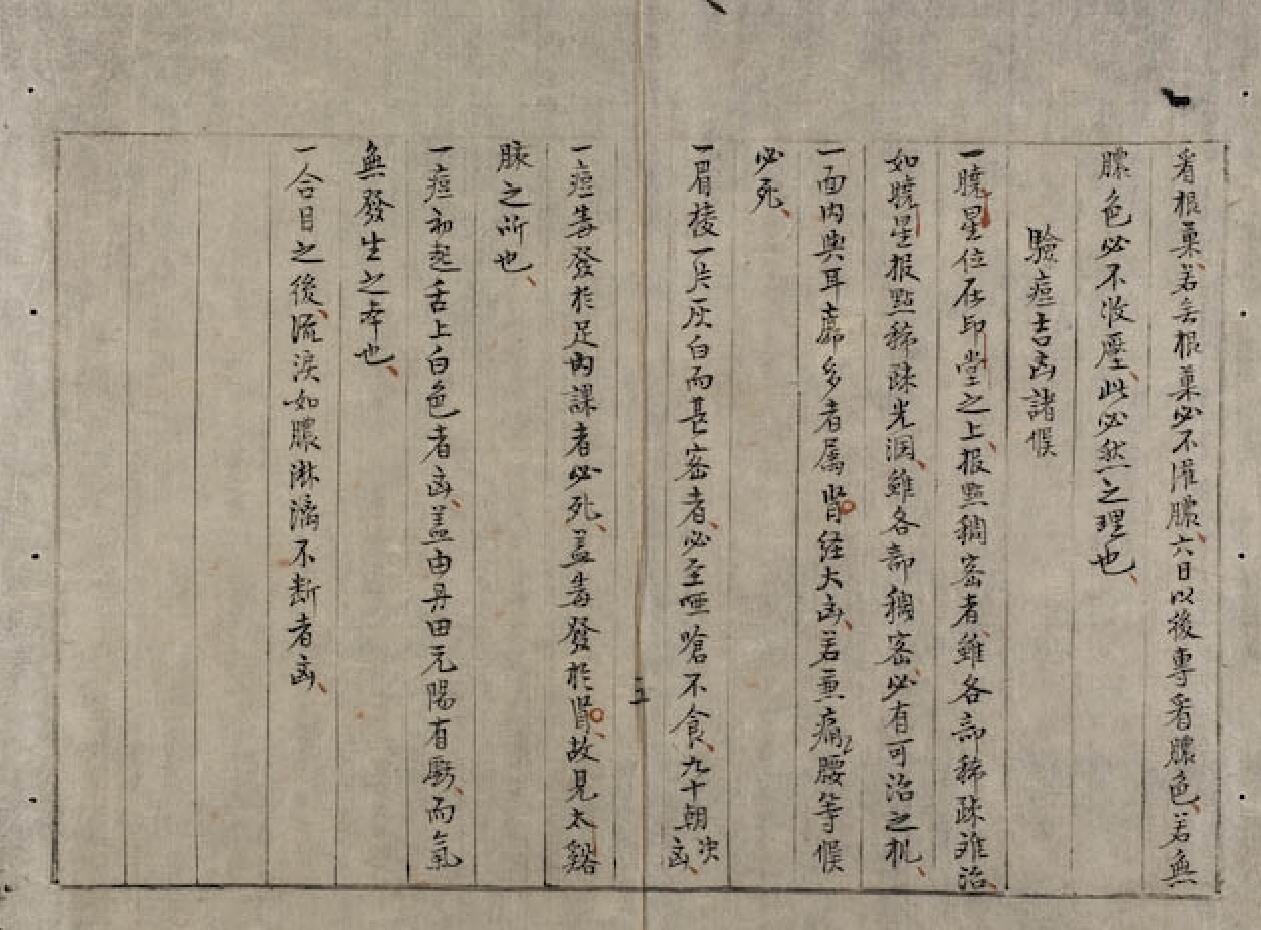 看根窠、若無根窠必不灌膿、六日以後專看膿色、若無
膿色必不收靨、此必然之理也、
驗痘吉凶諸候
一臆星位在印堂之上、报點稠密者、雖各部稀疎难治、
如臆星报點稀疎光潤、雖各部稠密、必有可治之机、
一面内與耳廓多者属腎経大凶、若兼痛腰等候
必死、
一眉棱一片灰白而甚密者、必至哑嗆不食、九十朝决凶、
五
一痘毒發於足内課者必死、盖毒發於腎、故見太谿
脉之所也、
一痘初起舌上白色者凶、盖由丹田元陽有虧、而氣
無發生之本也、
一合目之後、流淚如膿淋漓不断者凶、